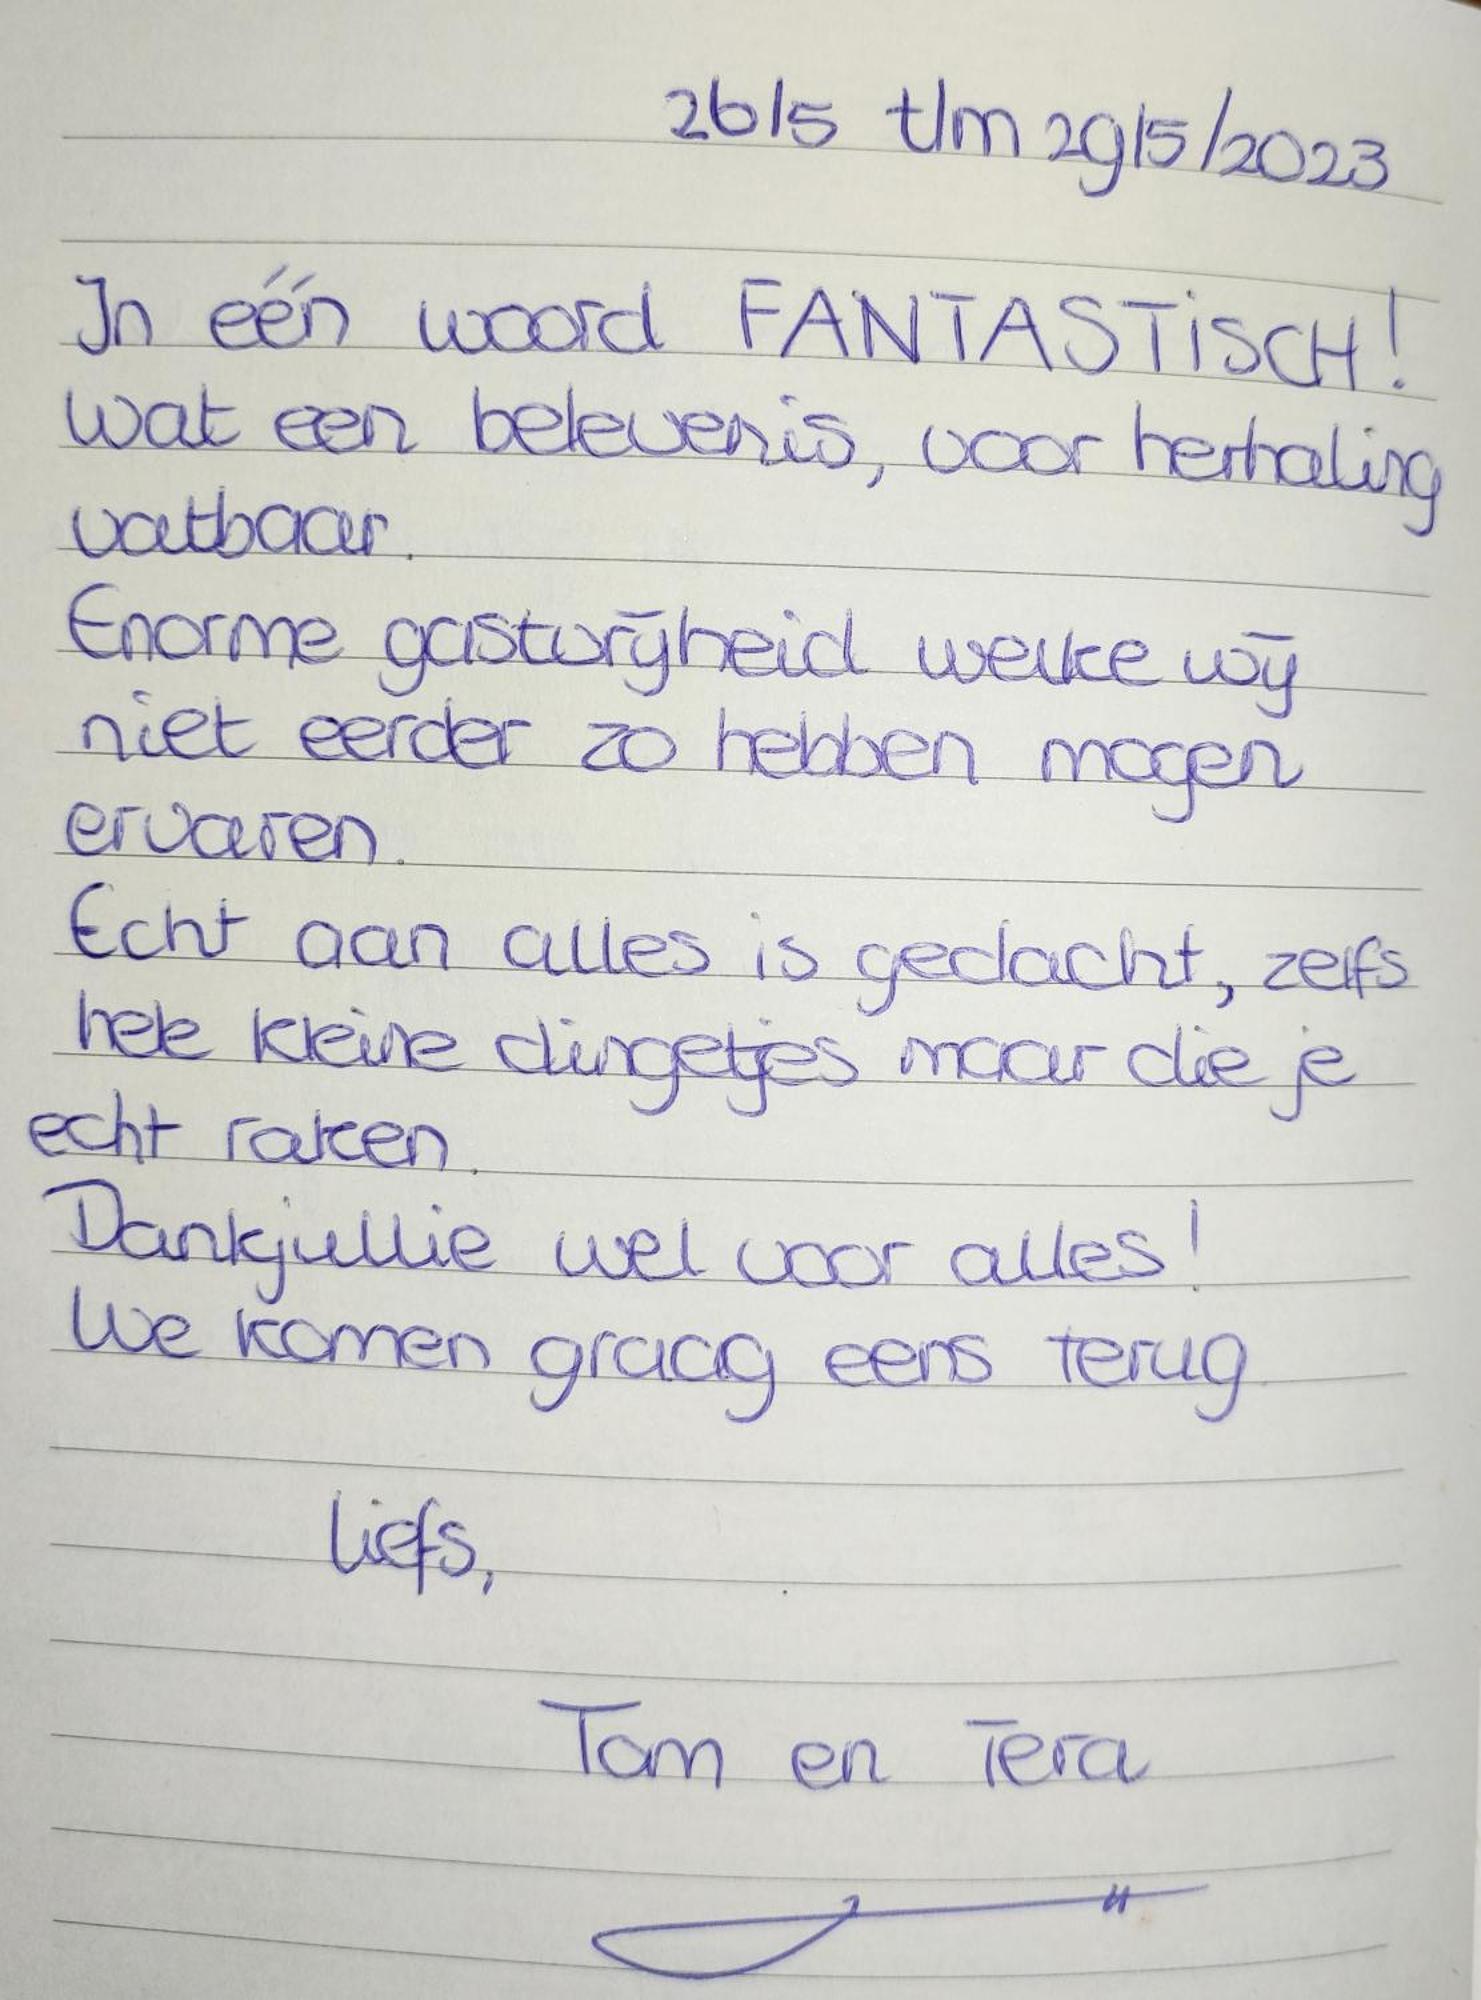 26/5 t/m 29/5/2023
In één woord FANTASTiSCH!
Wat een belevenis, voor herhaling
vatbaar.
Enorme gastvrijheid welke wij
niet eerder zo hebben mogen
ervaren.
Echt aan alles is gedacht, zelfs
hele kleine dingetjes maar die je
echt raken.
Dankjullie wel voor alles!
We komen graag eens terug
Liefs,
Tom en Tera